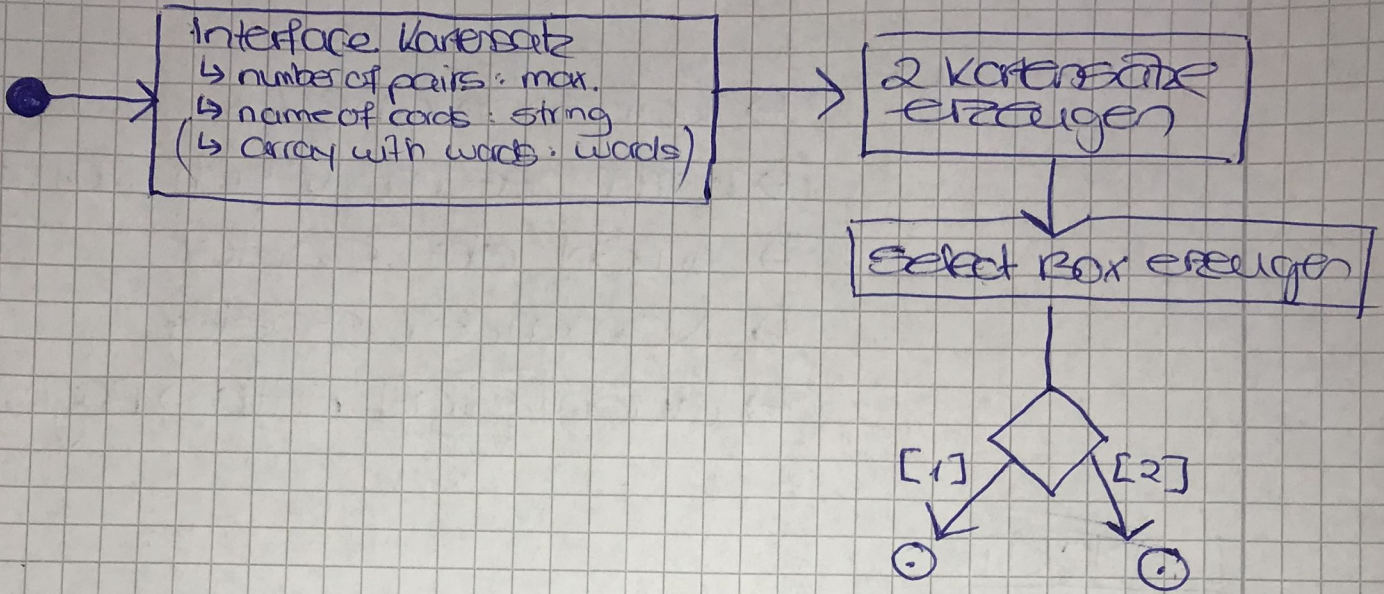 Interface Kartensatz
↳ number of pairs : max.
↳ name of cards : string
(↳ array with words : words)
2 Kartensätze
erzeugen
Select Box erzeugen
[1]
[2]